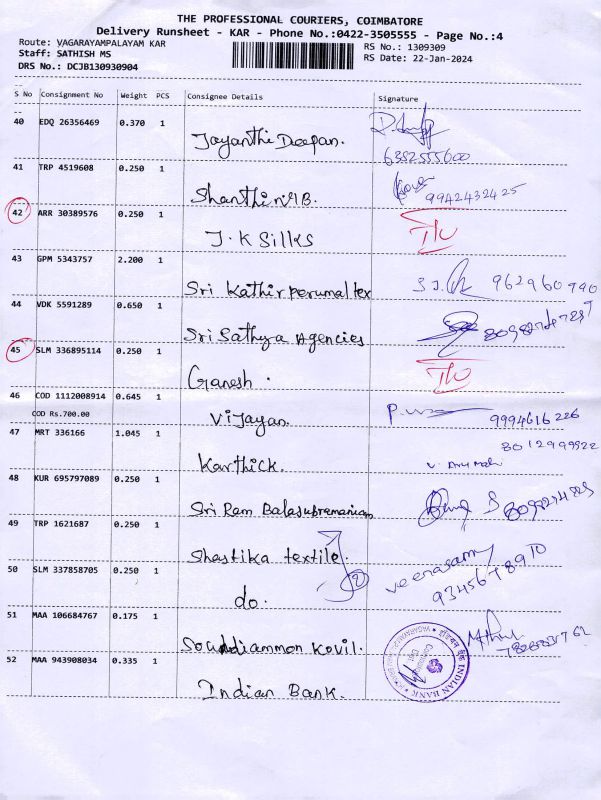 THE PROFESSIONAL COURIERS, COIMBATORE
Delivery Runsheet - KAR - Phone No.:0422-3505555 - Page No.:4
Route: VAGARAYAMPALAYAM KAR
Staff: SATHISH MS
DRS No.: DCJB130930904
RS No.: 1309309
RS Date: 22-Jan-2024
S No Consignment No Weight PCS Consignee Details Signature
40 EDQ 26356469 0.370 1
Jayanthi Deepan.
6382555600
41 TRP 4519608 0.250 1
9942432425
42 ARR 30389576 0.250 1
J.K Silks
43 GPM 5343757 2.200 1
Sri Kathirperumal tex
44 VDK 5591289 0.650 1
Sri Sathya Agencies
45 SLM 336895114 0.250 1
Ganesh.
46 COD 1112008914 0.645 1
COD Rs.700.00
Vijayan.
9994616226
47 MRT 336166 1.045 1
8012999922
Karthick.
48 KUR 695797089 0.250 1
Sri Ram Balasubramaniam
49 TRP 1621687 0.250 1
Shastika textile.
50 SLM 337858705 0.250 1
do.
2
veerasamy
9345678910
51 MAA 106684767 0.175 1
Kovil.
52 MAA 943908034 0.335 1
Indian Bank.
INDIAN BANK